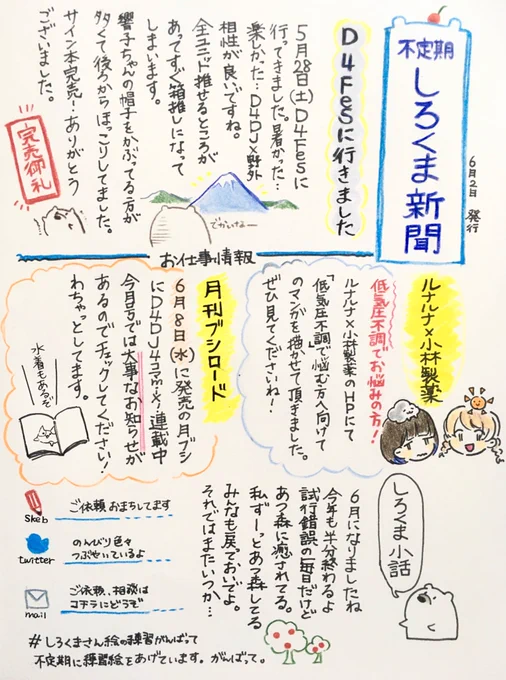 不定期
しろくま新聞
6月2日 発行
D4FeSに行きました
5月28日(土)D4FeSに
行ってきました。暑かった…
楽しかた…D4DJ×野外
相性が良いですね。
全ユニト推せるところが
あってすぐ箱推しになって
しまいます。
響子ちゃんの帽子をかぶってる方が
多くて後ろからほっこりしてました。
サイン本完売!ありがとう
ございました。
完売御礼
でかいなー
お仕事情報
ルナルナ×小林製薬
低気圧不調でお悩みの方!
ルナルナ×小林製薬のHPにて
「低気圧不調」で悩む方へ向けて
のマンガを描かせて頂きました。
ぜひ見てくださいね!
月刊ブシロード
6月8日(水)に発売の月ブシ
にD4DJ4コマMix!連載中
今月号では大事なお知らせが
あるのでチェックしてください!
わちゃっとしてます。
水着もあるぞ
しろくま小話
6月になりましたね
今年も半分終わるよ
試行錯誤の毎日だけど
あつ森に癒されてる。
私ずーっとあつ森してる
みんなも戻っておいでよ。
それではまたいつか…
Skeb
ご依頼おまちしてます
twitter
のんびり色々
つぶやいているよ
mail
ご依頼、相談は
コチラにどうぞ
#しろくまさん絵の練習がんばって
不定期に練習絵をあげています。がんばって。